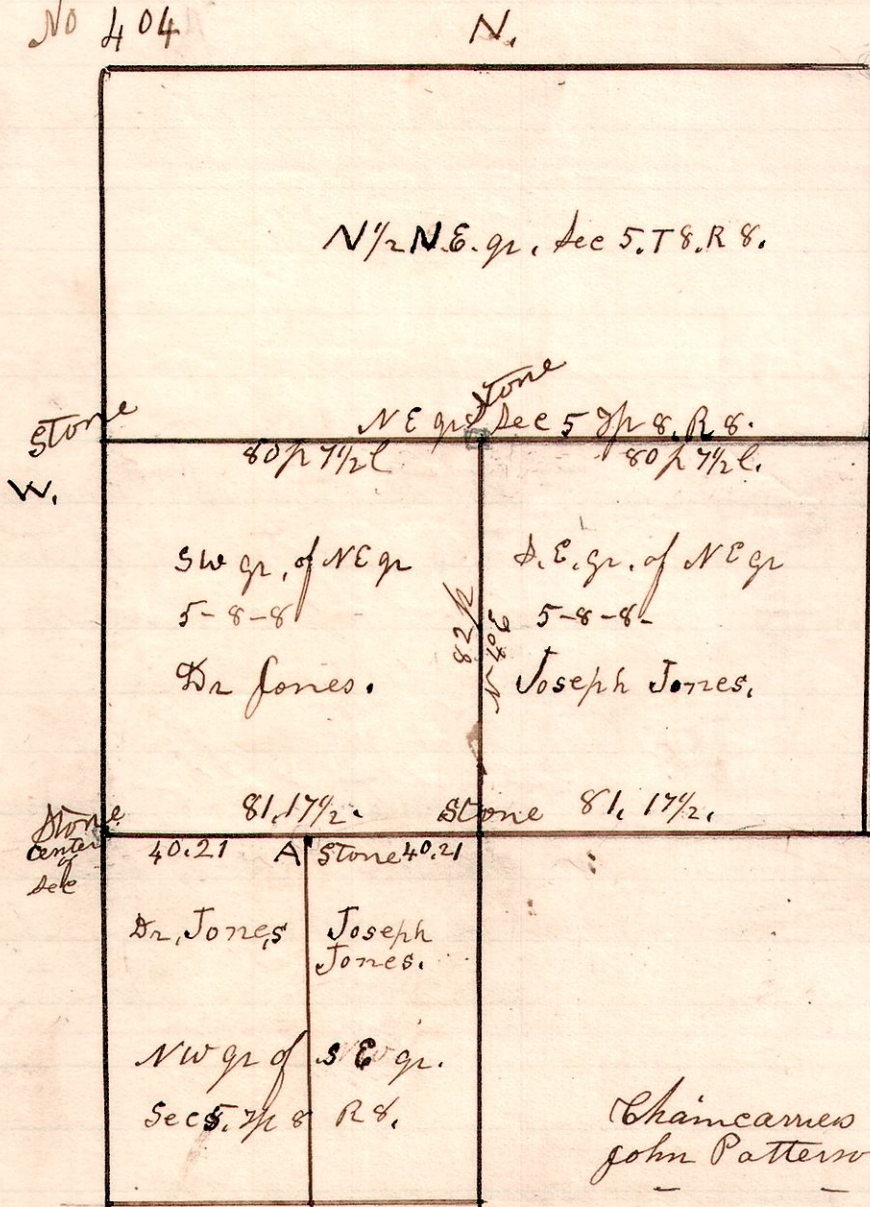 No 404
N.
N1/2 N.E. qr. Sec 5. T 8. R 8.
Stone
Stone
N E qr Sec 5 Tp 8. R 8.
W.
80p 7 1/2 l
80p 7 1/2 l.
SW qr. of NE qr
5-8-8
Dr Jones.
S.E. qr. of NE qr
5-8-8-
Joseph Jones.
82 p
81.17 1/2.
Stone 81. 17 1/2.
Stone
Center
of
Sec
40.21 A Stone 40.21
Dr, Jones,
Joseph
Jones.
NW qr of S E qr.
Sec 5. Tp 8 R 8.
Chaincarriers
John Patterso